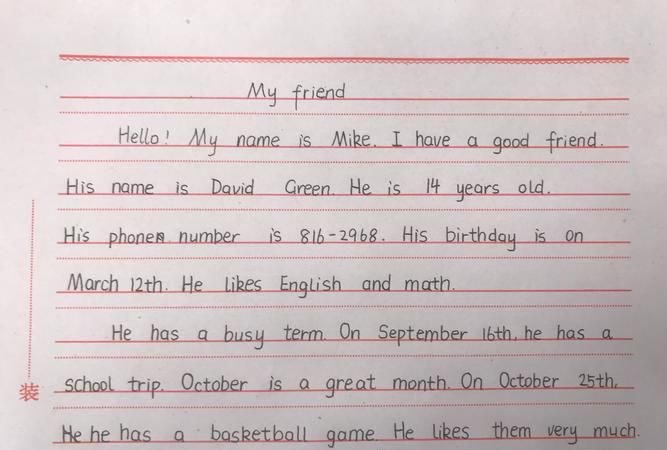 My friend
Hello! My name is Mike. I have a good friend.
His name is David Green. He is 14 years old.
His phone number is 816-2968. His birthday is on
March 12th. He likes English and math.
He has a busy term. On September 16th, he has a
装
school trip. October is a great month. On October 25th,
he has a basketball game. He likes them very much.